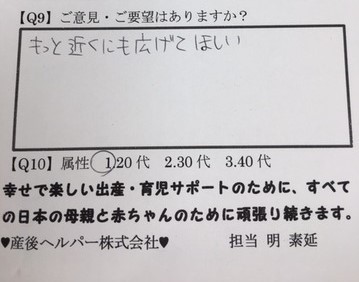 【Q9】ご意見・ご要望はありますか？
もっと近くにも広げてほしい
【Q10】属性 1.20代 2.30代 3.40代
幸せで楽しい出産・育児サポートのために、すべて
の日本の母親と赤ちゃんのために頑張り続きます。
♥産後ヘルパー株式会社♥ 担当 明 素延